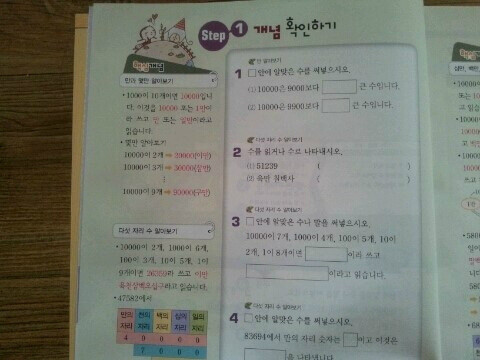 Step 1 개념 확인하기
핵심개념
만과 몇만 알아보기
• 1000이 10개이면 10000입니
다. 이것을 10000 또는 1만이
라 쓰고 만 또는 일만이라고
읽습니다.
• 몇만 알아보기
10000이 2개 ➡ 20000(이만)
10000이 3개 ➡ 30000(삼만)
10000이 9개 ➡ 90000(구만)
다섯 자리 수 알아보기
• 10000이 2개, 1000이 6개,
100이 3개, 10이 5개, 1이
9개이면 26359라 쓰고 이만
육천삼백오십구라고 읽습니다.
• 47582에서
만의 자리 천의 자리 백의 자리 십의 자리 일의 자리
4 0 0 0 0
만 알아보기
1 □ 안에 알맞은 수를 써넣으시오.
(1) 10000은 9000보다 □ 큰 수입니다.
(2) 10000은 9900보다 □ 큰 수입니다.
다섯 자리 수 알아보기
2 수를 읽거나 수로 나타내시오.
(1) 51239 (
(2) 육만 칠백사 (
다섯 자리 수 알아보기
3 □ 안에 알맞은 수나 말을 써넣으시오.
10000이 7개, 1000이 4개, 100이 5개, 10이
2개, 1이 8개이면 □이라 쓰고
□이라고 읽습니다.
다섯 자리 수 알아보기
4 □ 안에 알맞은 수를 써넣으시오.
83694에서 만의 자리 숫자는 □이고 이것은
□을 나타냅니다.